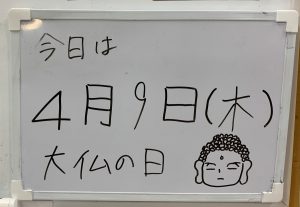 今日は
4月9日(木)
大仏の日